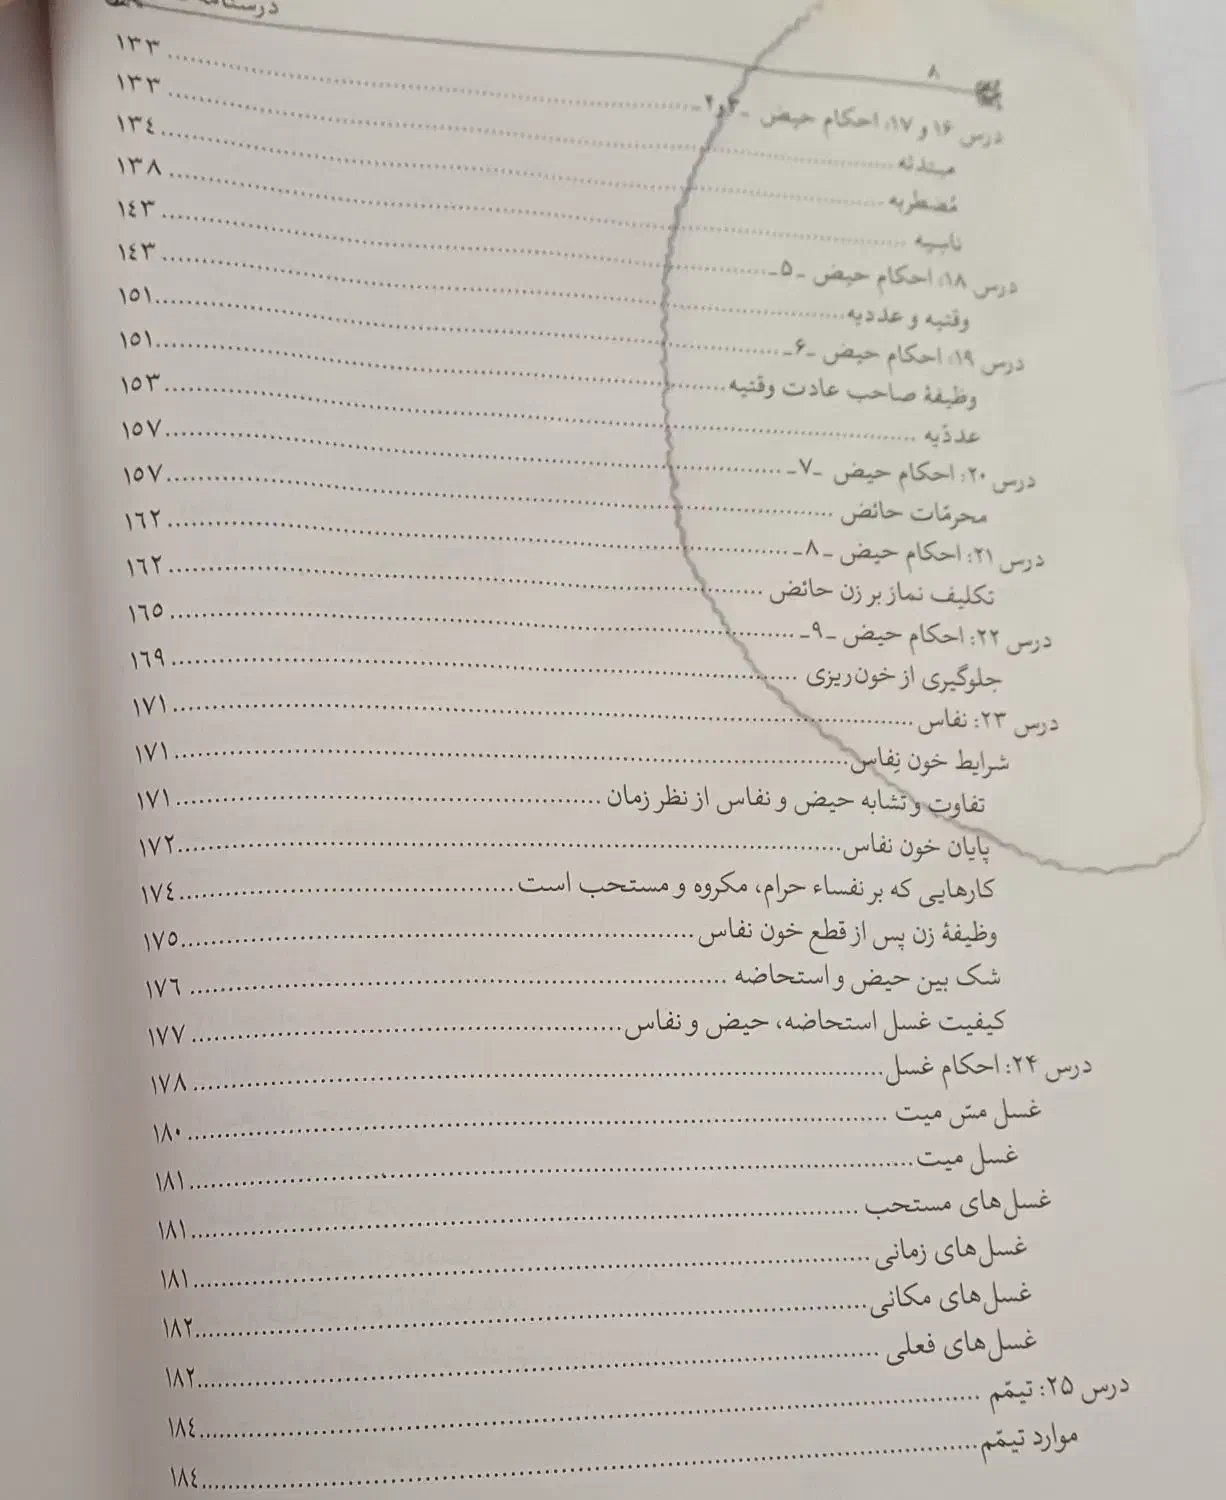 درسنامه
۸
درس ۱۶ و ۱۷: احکام حیض ـ۳و۴ـ ........ ۱۳۳
مبتدئه ........ ۱۳۳
مُضطربه ........ ۱۳٤
ناسیه ........ ۱۳۸
درس ۱۸: احکام حیض ـ۵ـ ........ ۱٤۳
وقتیه و عددیه ........ ۱٤۳
درس ۱۹: احکام حیض ـ۶ـ ........ ۱۵۱
وظیفهٔ صاحب عادت وقتیه ........ ۱۵۱
عددیّه ........ ۱۵۳
درس ۲۰: احکام حیض ـ۷ـ ........ ۱۵۷
محرمّات حائض ........ ۱۵۷
درس ۲۱: احکام حیض ـ۸ـ ........ ۱٦۲
تکلیف نماز بر زن حائض ........ ۱٦۲
درس ۲۲: احکام حیض ـ۹ـ ........ ۱٦۵
جلوگیری از خون‌ریزی ........ ۱٦۹
درس ۲۳: نفاس ........ ۱۷۱
شرایط خون نِفاس ........ ۱۷۱
تفاوت و تشابه حیض و نفاس از نظر زمان ........ ۱۷۱
پایان خون نفاس ........ ۱۷۲
کارهایی که بر نفساء حرام، مکروه و مستحب است ........ ۱۷٤
وظیفهٔ زن پس از قطع خون نفاس ........ ۱۷۵
شک بین حیض و استحاضه ........ ۱۷٦
کیفیت غسل استحاضه، حیض و نفاس ........ ۱۷۷
درس ۲۴: احکام غسل ........ ۱۷۸
غسل مسّ میت ........ ۱۸۰
غسل میت ........ ۱۸۱
غسل‌های مستحب ........ ۱۸۱
غسل‌های زمانی ........ ۱۸۱
غسل‌های مکانی ........ ۱۸۲
غسل‌های فعلی ........ ۱۸۲
درس ۲۵: تیمّم ........ ۱۸٤
موارد تیمّم ........ ۱۸٤